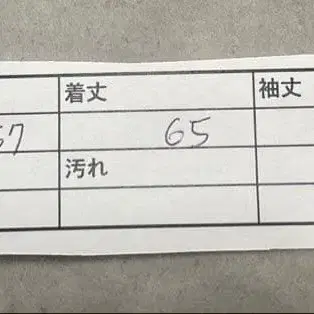 着丈 袖丈
57 65
汚れ